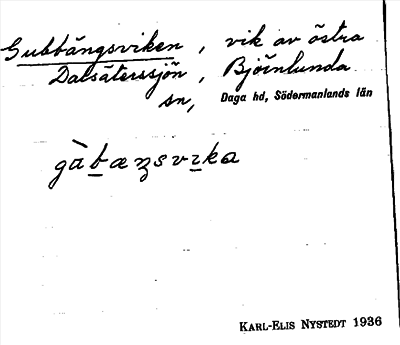 Gubbängsviken, vik av östra
Dalsäterssjön, Björnlunda
sn, Daga hd, Södermanlands län
gàbæŋsvıka
KARL-ELIS NYSTEDT 1936